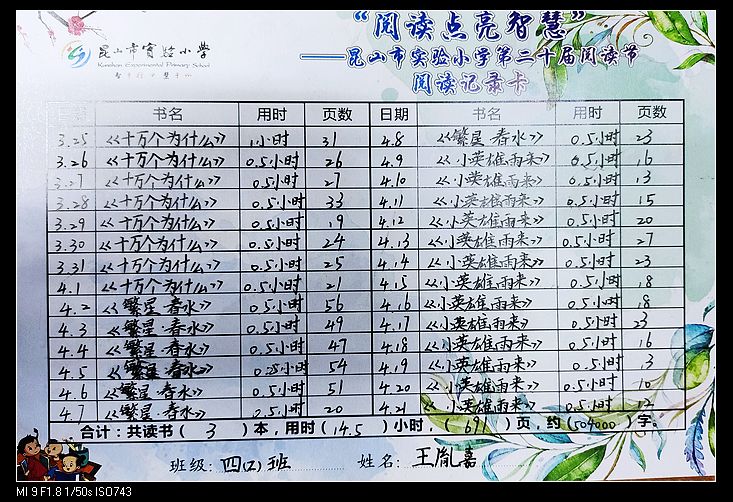 昆山市实验小学
Kunshan Experimental Primary School
“阅读点亮智慧”
——昆山市实验小学第二十届阅读节
阅读记录卡
日期 书名 用时 页数 日期 书名 用时 页数
3.25 《十万个为什么》 1小时 31 4.8 《繁星·春水》 0.5小时 23
3.26 《十万个为什么》 0.5小时 26 4.9 《小英雄雨来》 0.5小时 16
3.27 《十万个为什么》 0.5小时 27 4.10 《小英雄雨来》 0.5小时 13
3.28 《十万个为什么》 0.5小时 33 4.11 《小英雄雨来》 0.5小时 15
3.29 《十万个为什么》 0.5小时 19 4.12 《小英雄雨来》 0.5小时 20
3.30 《十万个为什么》 0.5小时 24 4.13 《小英雄雨来》 0.5小时 27
3.31 《十万个为什么》 0.5小时 25 4.14 《小英雄雨来》 0.5小时 23
4.1 《十万个为什么》 0.5小时 21 4.15 《小英雄雨来》 0.5小时 18
4.2 《繁星·春水》 0.5小时 56 4.16 《小英雄雨来》 0.5小时 18
4.3 《繁星·春水》 0.5小时 49 4.17 《小英雄雨来》 0.5小时 23
4.4 《繁星·春水》 0.5小时 47 4.18 《小英雄雨来》 0.5小时 16
4.5 《繁星·春水》 0.5小时 54 4.19 《小英雄雨来》 0.5小时 13
4.6 《繁星·春水》 0.5小时 51 4.20 《小英雄雨来》 0.5小时 10
4.7 《繁星·春水》 0.5小时 20 4.21 《小英雄雨来》 0.5小时 12
合计：共读书（3）本，用时（14.5）小时，（691）页，约（504000）字。
班级：四(2)班 姓名：王胤嘉
MI 9 F1.8 1/50s ISO743